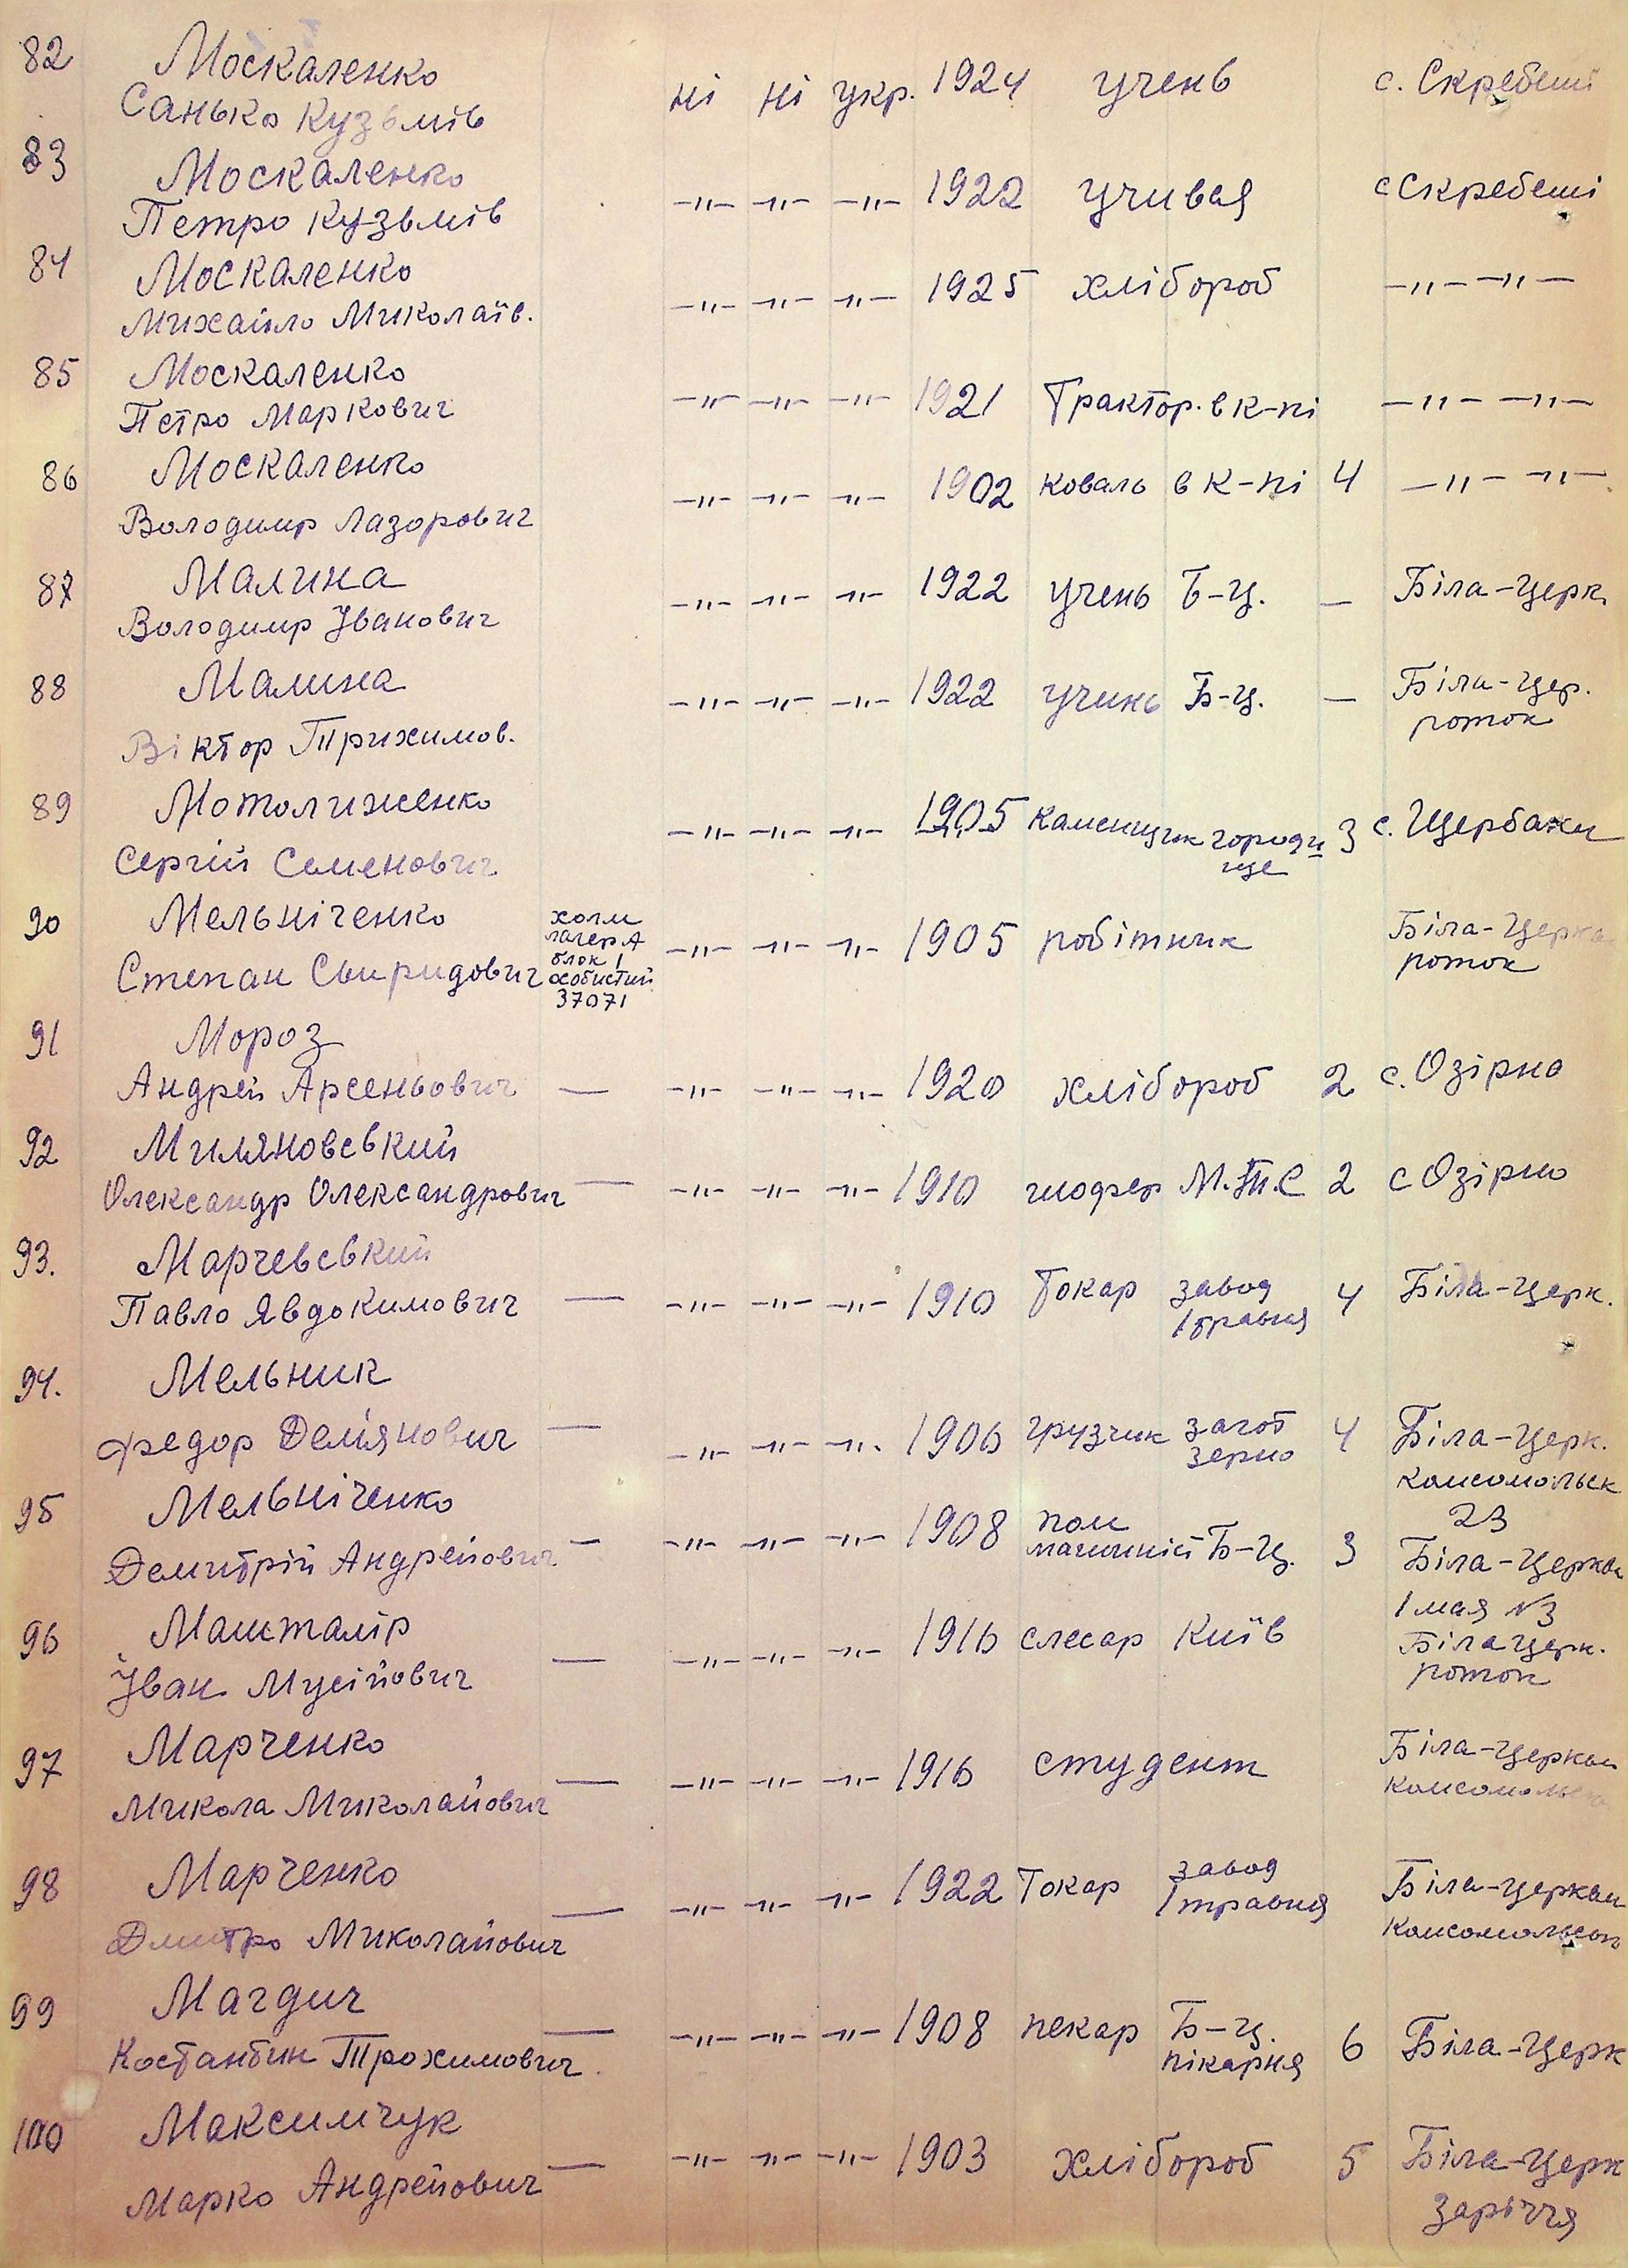 82 Москаленко
Санько Кузьмів ні ні укр. 1924 учень с. Скребеші
83 Москаленко
Петро Кузьмів -"- -"- -"- 1922 учився с Скребеші
84 Москаленко
Михайло Миколаїв. -"- -"- -"- 1925 хлібороб -"- -"-
85 Москаленко
Петро Маркович -"- -"- -"- 1921 Трактор. в к-пі -"- -"-
86 Москаленко
Володимир Лазорович -"- -"- -"- 1902 коваль в к-пі 4 -"- -"-
87 Малина
Володимир Іванович -"- -"- -"- 1922 учень Б-Ц. — Біла-Церк.
88 Малина
Віктор Трихимов. -"- -"- -"- 1922 учинь Б-Ц. — Біла-Цер.
роток
89 Мотолиженко
Сергій Семенович -"- -"- -"- 1905 каменщик городи
ще 3 с. Щербаки
90 Мельніченко
Степан Свиридович холм
лагер А
блок 1
особистий
37071 -"- -"- -"- 1905 робітник Біла-Церква
роток
91 Мороз
Андрей Арсеньович — -"- -"- -"- 1920 хлібороб 2 с. Озірно
92 Миляновський
Олександр Олександрович — -"- -"- -"- 1910 шофер М.Т.С 2 с Озірно
93. Марчевський
Павло Явдокимович — -"- -"- -"- 1910 Токар завод
1 травня 4 Біла-Церк.
94. Мельник
Федор Дем'янович — -"- -"- -"- 1906 грузчик загот
зерно 4 Біла-Церк.
Комсомольск
23
95 Мельніченко
Демитрій Андрейович — -"- -"- -"- 1908 пом
машиніст Б-Ц. 3 Біла-Церква
1 мая N3
96 Машталір
Іван Мусійович — -"- -"- -"- 1916 слесар Київ Біла Церк.
роток
97 Марченко
Микола Миколайович — -"- -"- -"- 1916 студент Біла-Церква
Комсомольска
98 Марченко
Дмитро Миколайович — -"- -"- -"- 1922 Токар завод
1 травня Біла-Церква
Комсомольськ
99 Магдич
Костантин Трохимович. — -"- -"- -"- 1908 пекар Б-Ц.
пікарня 6 Біла-Церк
100 Максимчук
Марко Андрейович — -"- -"- -"- 1903 хлібороб 5 Біла-Церк
Заріччя